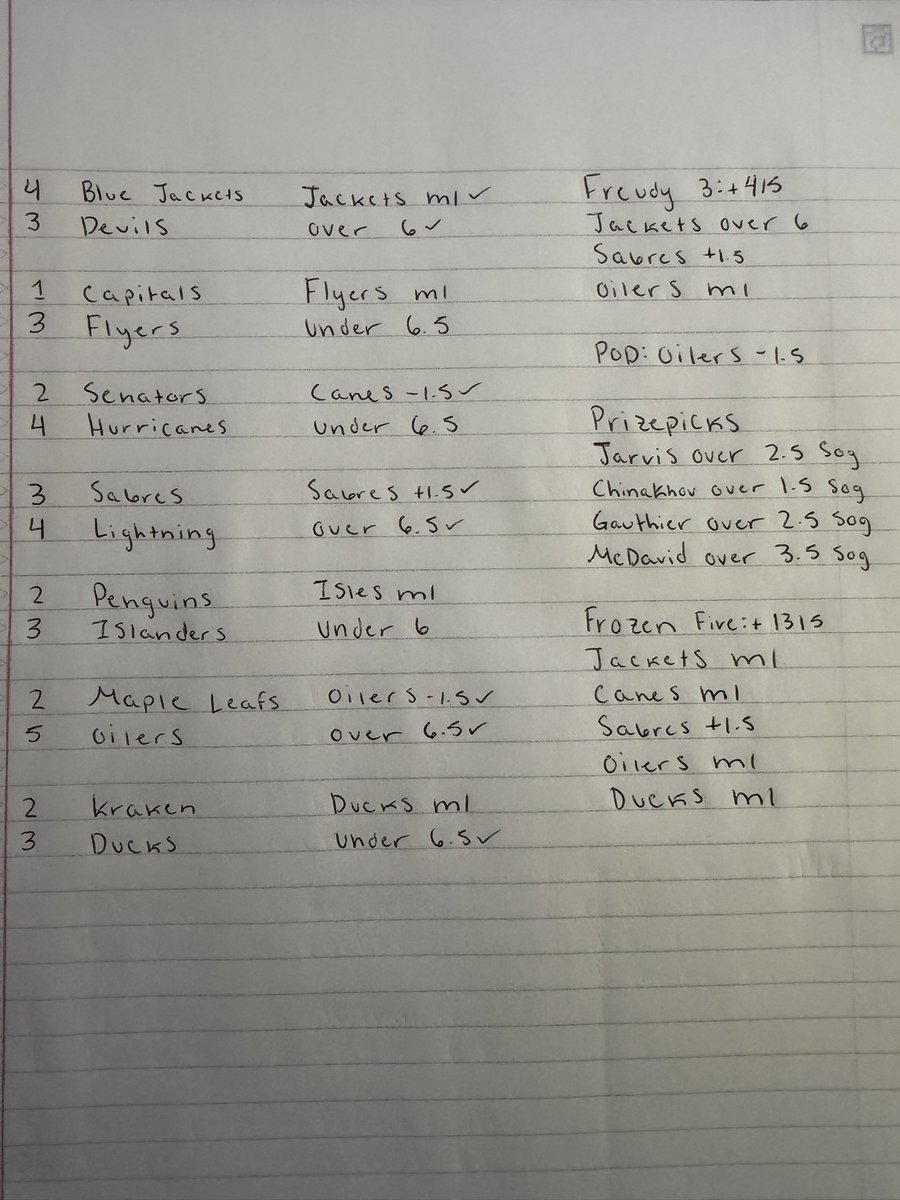 4 Blue Jackets Jackets ml ✓ Freudy 3:+415
3 Devils over 6 ✓ Jackets over 6
Sabres +1.5
1 Capitals Flyers ml Oilers ml
3 Flyers Under 6.5
POD: Oilers -1.5
2 Senators Canes -1.5 ✓
4 Hurricanes Under 6.5 Prizepicks
Jarvis over 2.5 Sog
3 Sabres Sabres +1.5 ✓ Chinakhov over 1.5 Sog
4 Lightning over 6.5 ✓ Gauthier over 2.5 Sog
McDavid over 3.5 Sog
2 Penguins Isles ml
3 Islanders Under 6 Frozen Five:+ 1315
Jackets ml
2 Maple Leafs Oilers -1.5 ✓ Canes ml
5 Oilers over 6.5 ✓ Sabres +1.5
Oilers ml
2 Kraken Ducks ml Ducks ml
3 Ducks Under 6.5 ✓